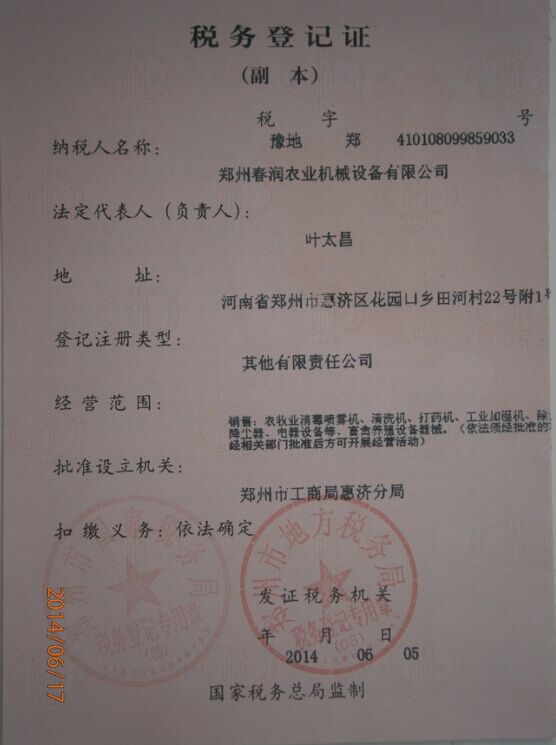 税务登记证
(副 本)
税 字 号
豫地 郑 410108099859033
纳税人名称:
郑州春润农业机械设备有限公司
法定代表人(负责人):
叶太昌
地 址:
河南省郑州市惠济区花园口乡田河村22号附1号
登记注册类型:
其他有限责任公司
经营范围:
销售:农牧业消毒喷雾机、清洗机、打药机、工业加湿机、除
降尘器、电器设备等、畜禽养殖设备器械。(依法须经批准的
经相关部门批准后方可开展经营活动)
批准设立机关:
郑州市工商局惠济分局
扣缴义务:依法确定
郑州市国家税务局
税务登记专用章
(05)
郑州市地方税务局
税务登记专用章
(05)
发证税务机关
年 月 日
2014 06 05
国家税务总局监制
2014/06/17